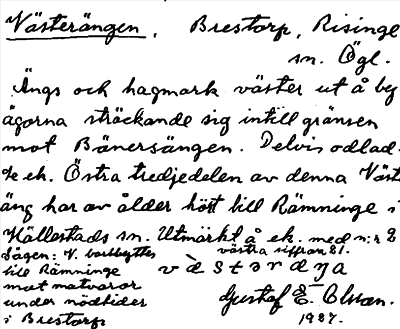 Västerängen, Brestorp, Risinge
sn. Ögl.
Ängs och hagmark väster ut å by
ägorna sträckande sig intill gränsen
mot Bänersängen. Delvis odlad.
å ek. Östra tredjedelen av denna Väst
äng har av ålder hört till Rämninge i
Hällestads sn. Utmärkt å ek. med nr: 2
västra siffran 21.
Sägen: V. bortbyttes
till Rämninge
mot matvaror
under nödtider
i Brestorp
Gustaf E. Olsson.
1927.